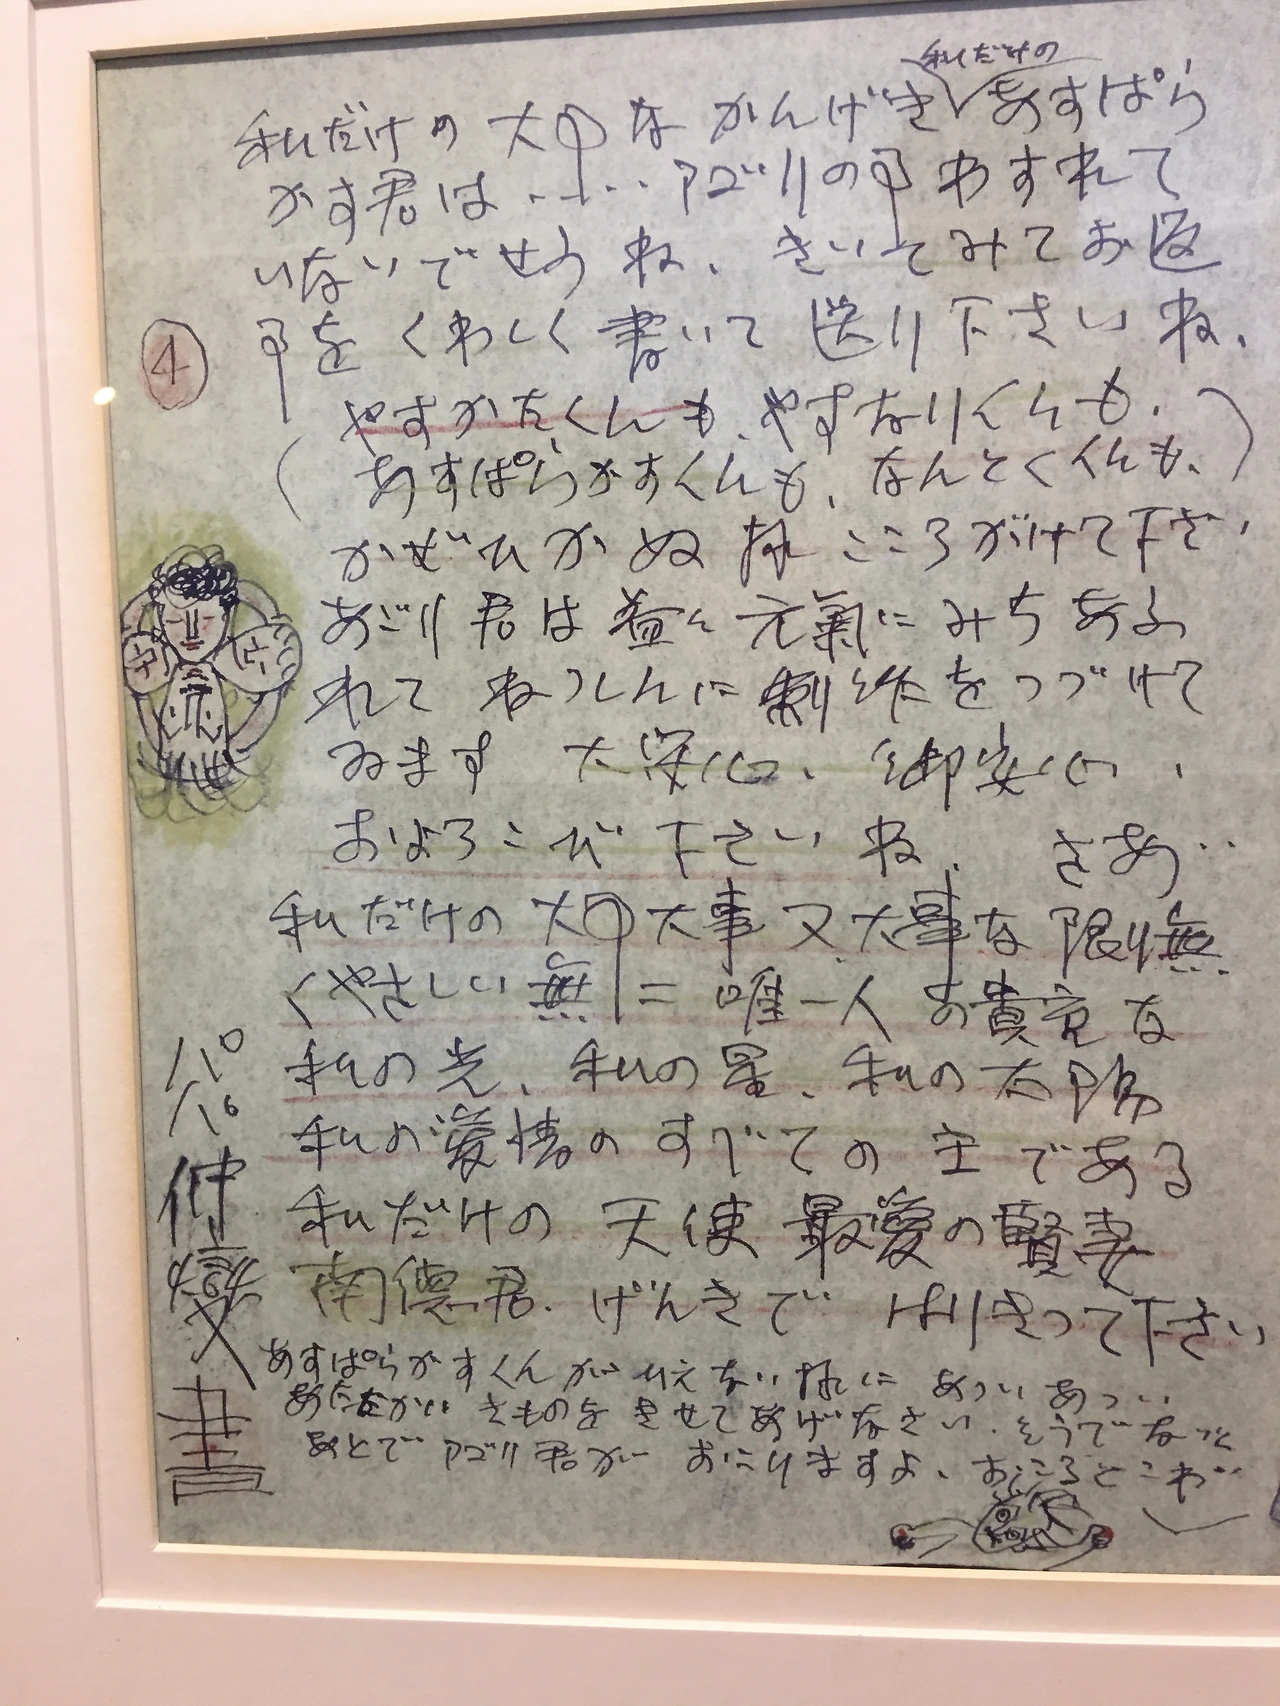 私だけの
私だけの大事なかんげき あすぱら
がす君は‥‥‥アゴリの事わすれて
いないでせうね、きいてみてお返
事をくわしく書いて送り下さいね、
4
やすかたくんも、やすなりくんも、
(あすぱらがすくんも、なんとくくんも、)
かぜひかぬ様こころがけて下さい
あごり君は益々元氣にみちあふ
れてねつしんに制作をつづけて
ゐます 大安心、御安心、
およろこび下さいね、さあ‥
私だけの大事大事又大事な限り無
くやさしい無事=唯一人の貴京な
私の光、私の星、私の太陽
私の愛情のすべての主である
私だけの天使 最愛の賢妻
南德君、げんきではりきって下さい
あすぱらがすくんがひえない様にあついあつい
あたたかいきものをきせてあげなさい、そうでないと
あとでアゴリ君がおこりますよ、おころとこわ‥
パパ 仲燮 父 書